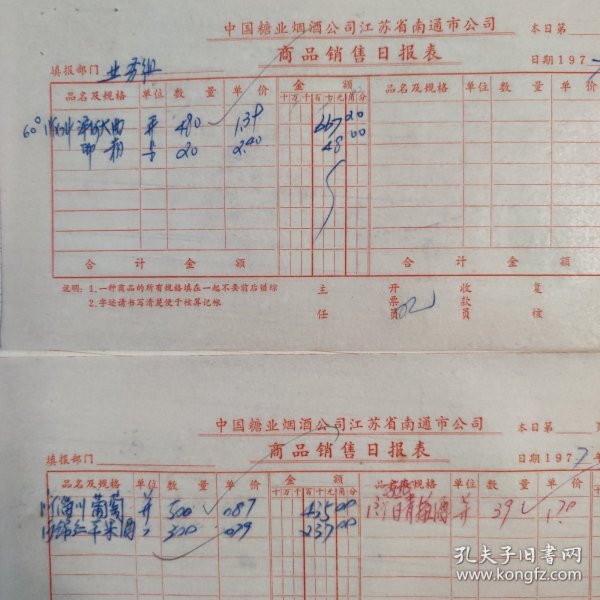 中国糖业烟酒公司江苏省南通市公司
本日第
商品销售日报表
填报部门 业务组
日期197
品名及规格 单位 数量 单价 金额 品名及规格 单位 数量 单价 金额
十万千百十元角分
60° 大曲 480 1.39 667 20
20 2.40 48 00
合计金额 合计金额
说明：1.一种商品的所有规格填在一起不要前后错综
2.字迹请书写清楚便于核算记帐
主任 开票员 收款员 复核
中国糖业烟酒公司江苏省南通市公司
本日第 页
商品销售日报表
填报部门
日期1977年
品名及规格 单位 数量 单价 金额 品名及规格 单位 数量 单价
十万千百十元角分
葡萄 500 .87 435 00 青梅酒 39 1.70
苹果酒 300 .79 237 00
孔夫子旧书网
www.kongfz.com